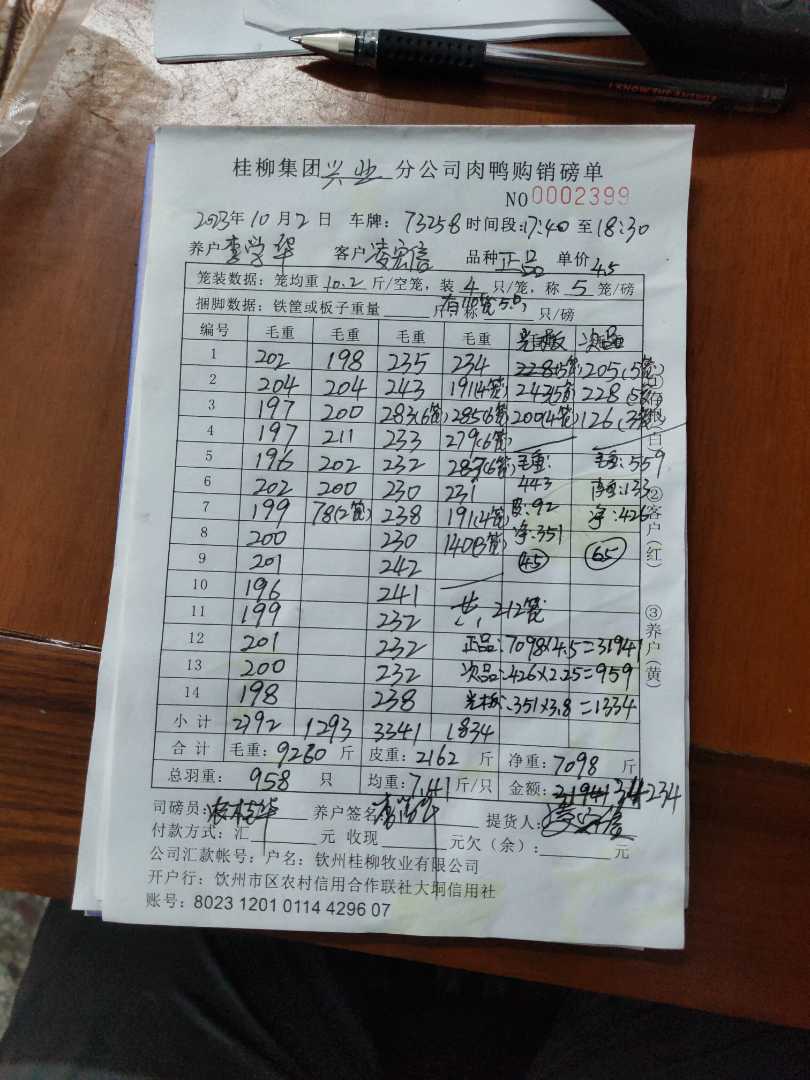 桂柳集团兴业分公司肉鸭购销磅单
NO0002399
2023年10月2日 车牌：73258 时间段:17:40至18:30
养户李学华 客户凌宏信 品种正品 单价4.5
笼装数据：笼均重10.2斤/空笼，装4只/笼，称5笼/磅
捆脚数据：铁筐或板子重量 斤 称 只/磅
编号 毛重 毛重 毛重 毛重 光板 次品
1 202 198 235 234 228(5笼) 205(5笼)
2 204 204 243 191(4笼) 243(5笼) 228(5笼)
3 197 200 283(6笼) 285(6笼) 200(4笼) 126(3笼)
4 197 211 233 279(6笼)
5 196 202 232 287(6笼) 毛重: 毛重:559
6 202 200 230 231 443 皮重:133
7 199 78(2笼) 238 191(4笼) 皮:92 净:426
8 200 230 140(3笼) 净:351
9 201 242 45 65
10 196 241
11 199 232 共,212笼
12 201 232 正品:7098×4.5=31941
13 200 232 次品:426×2.25=959
14 198 238 光板:351×3.8=1334
小计 2792 1293 3341 1834
合计 毛重：9260斤 皮重：2162斤 净重：7098斤
总羽重： 958 只 均重：7.41斤/只 金额：31941 34234
司磅员： 养户签名： 提货人：
付款方式：汇 元 收现 元欠（余）： 元
公司汇款帐号：户名：钦州桂柳牧业有限公司
开户行：饮州市区农村信用合作联社大垌信用社
账号：8023 1201 0114 4296 07
①存根（白）
②客户（红）
③养户（黄）